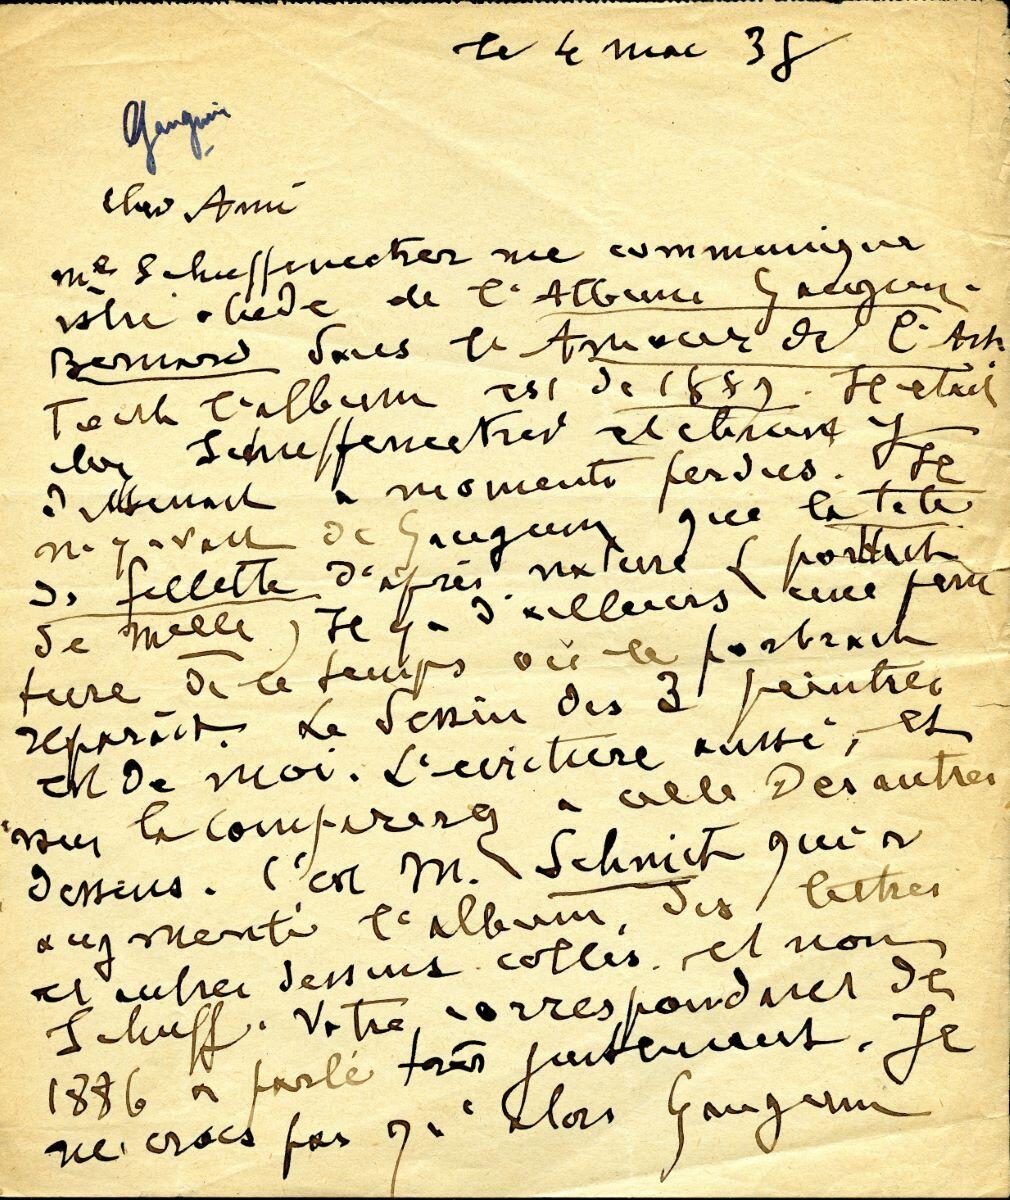 le 4 mai 38
Gauguin
Cher Ami
Mme Schuffenecker me communique
votre étude de l'Album Gauguin-
Bernard dans le Amour de l'Art
Tout l'album est de 1889. Il était
chez Schuffenecker et chacun y
dessinait à moments perdus. Il
n'y avait de Gauguin que la tête
de fillette d'après nature (portrait
de Melle) Il y a d'ailleurs une pein
ture de ce temps où le portrait
reparaît. Le dessin des 3 peintres
est de moi. L'écriture aussi, et
vous la comparerez à celle des autres
dessins. C'est M. Schmit qui a
augmenté l'album, des lettres
et autres dessins collés. et non
Schuff. Votre correspondant de
1886 a parlé très justement. Je
ne crois pas qu'alors Gauguin